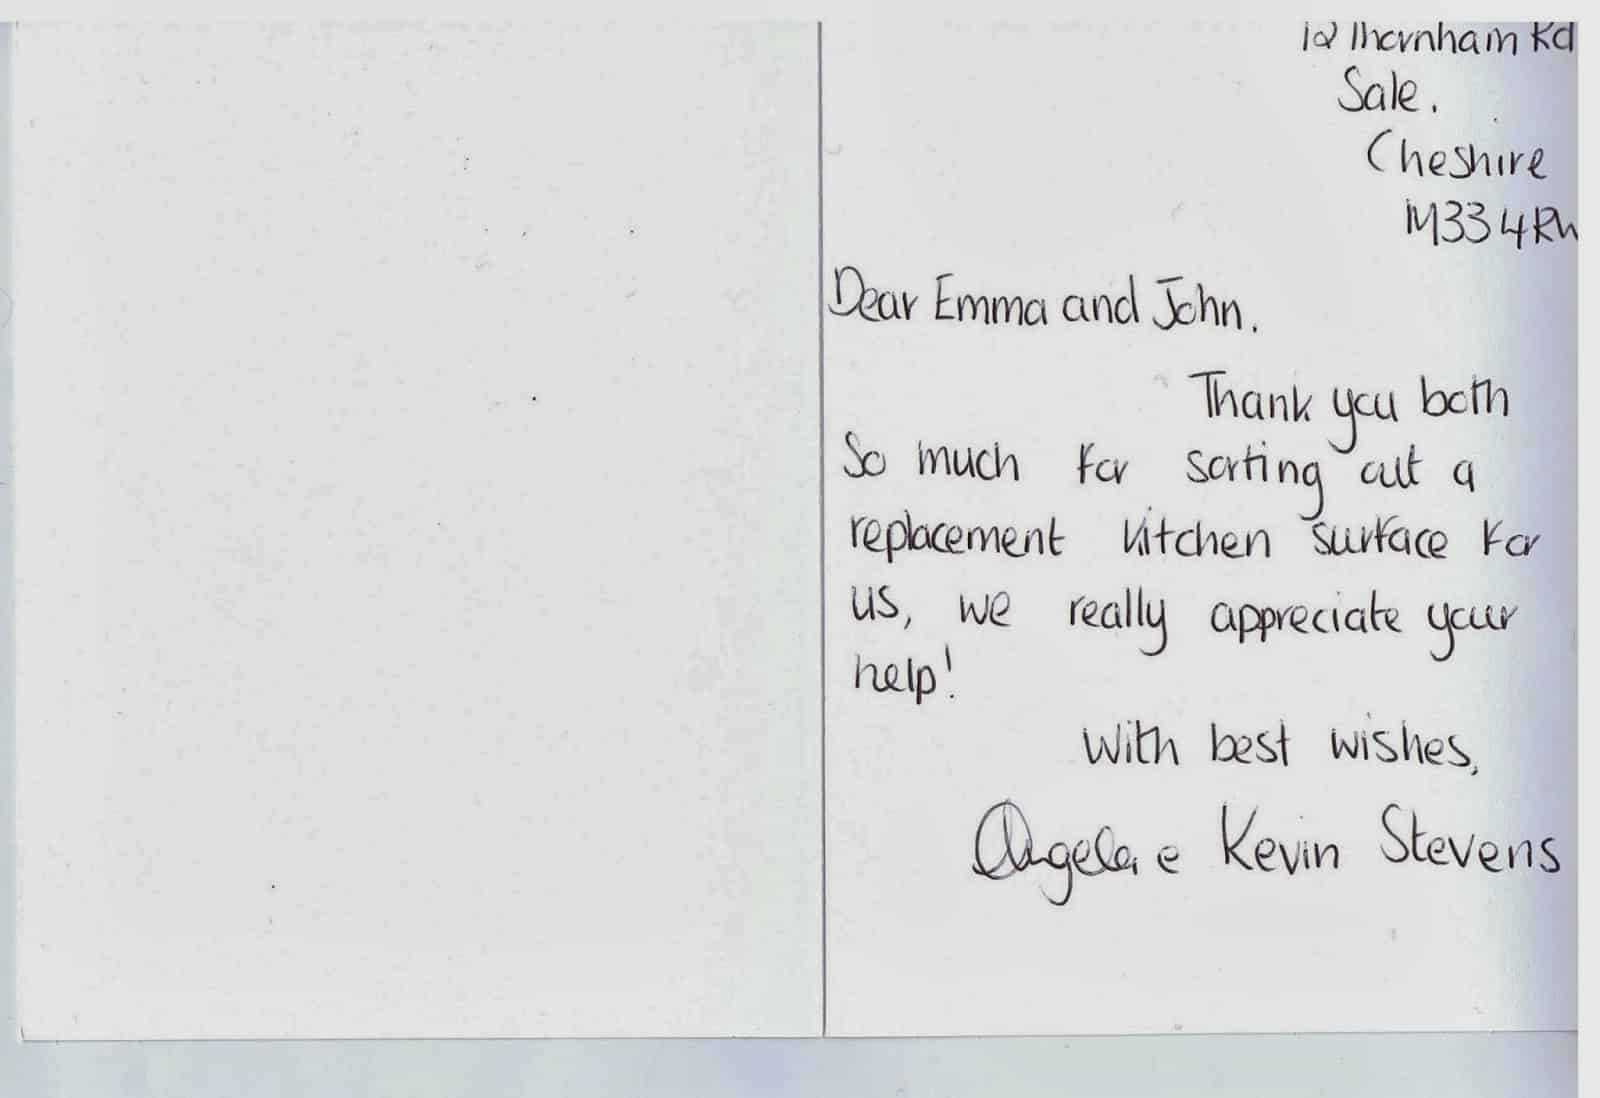 12 Thornham Rd
Sale.
Cheshire
M33 4R
Dear Emma and John.
Thank you both
So much for sorting out a
replacement kitchen surface for
us, we really appreciate your
help!
With best wishes,
Angela e Kevin Stevens